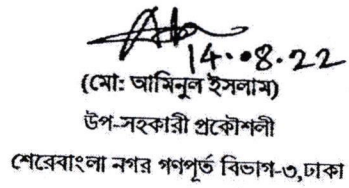 14.08.22
(মো: আমিনুল ইসলাম)
উপ-সহকারী প্রকৌশলী
শেরেবাংলা নগর গণপূর্ত বিভাগ-৩,ঢাকা